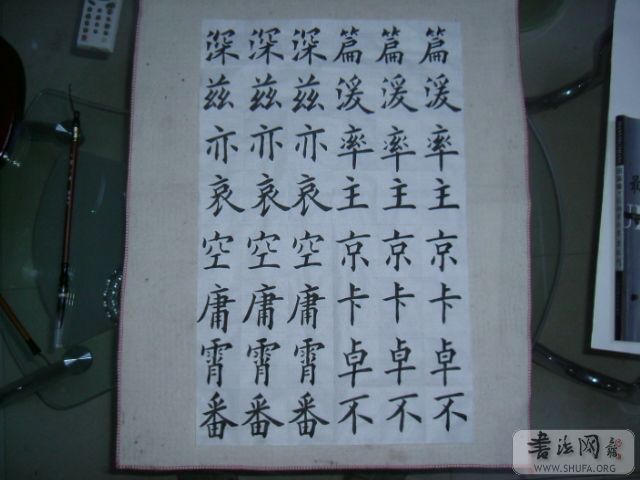 篇湲率主京卡卓不
篇湲率主京卡卓不
篇湲率主京卡卓不
深兹亦哀空庸霄番
深兹亦哀空庸霄番
深兹亦哀空庸霄番
书法网
WWW.SHUFA.ORG